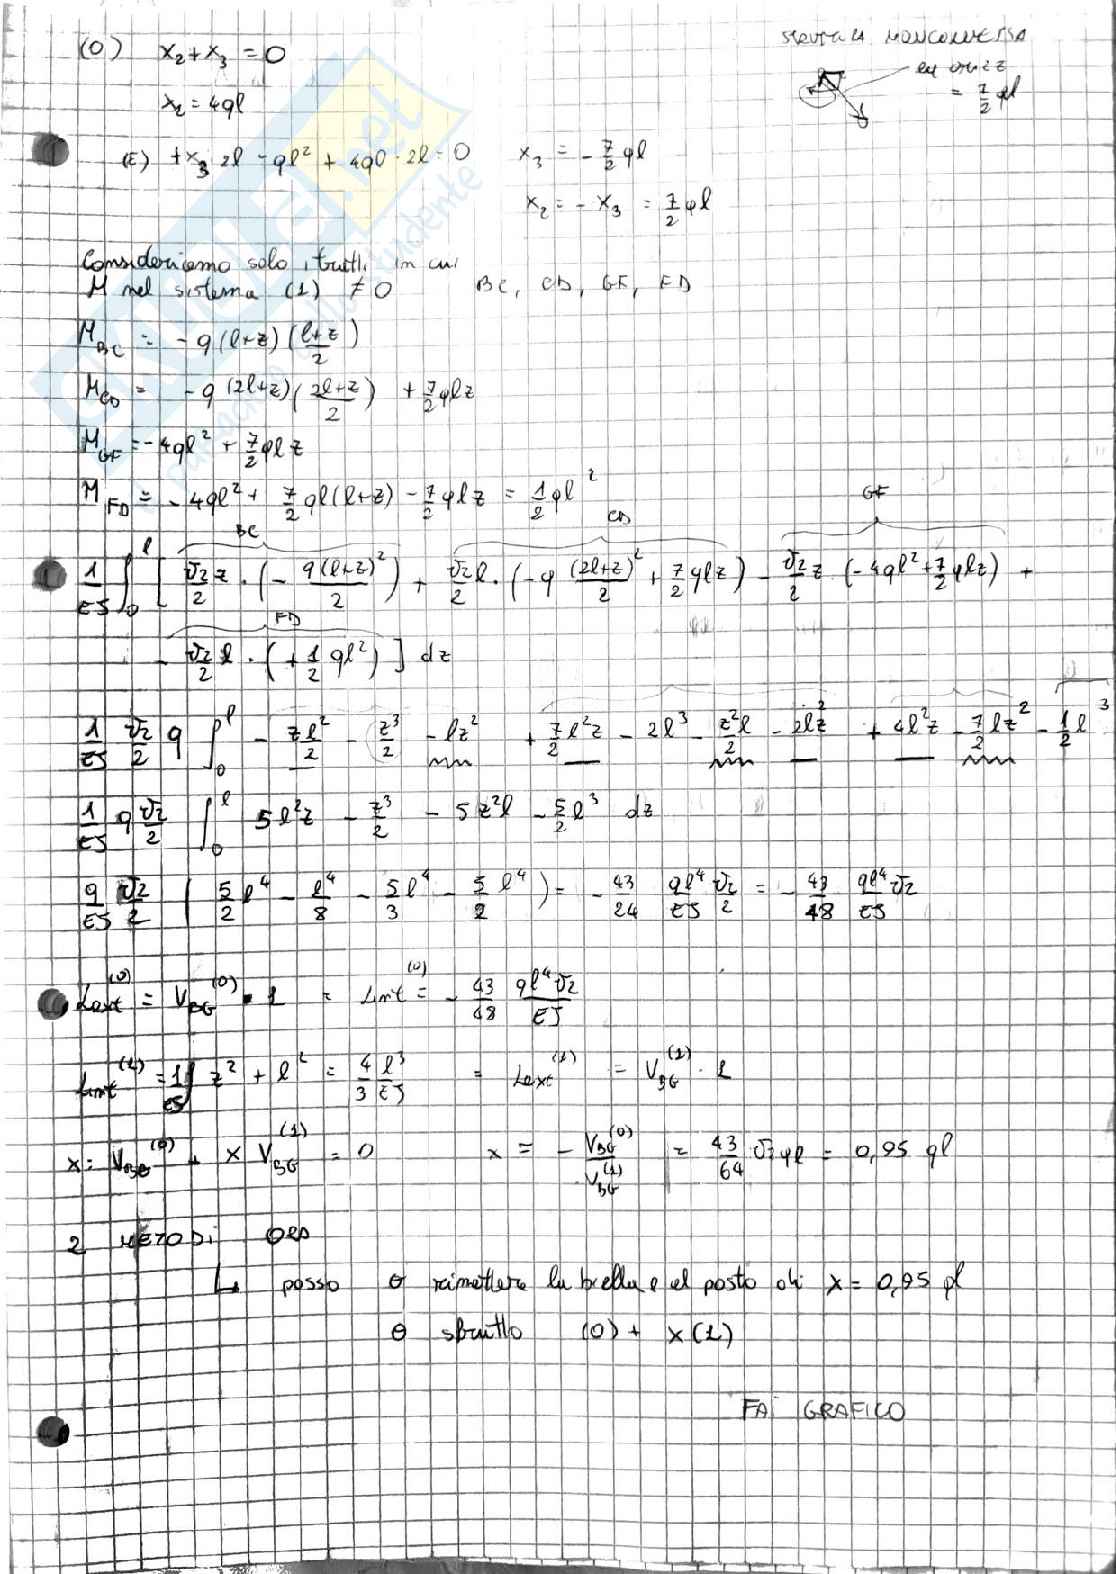 (0) x₂+x₃ = 0
x₂ = 4ql
(E) +x₃ 2l - ql² + 4ql · 2l = 0 x₃ = - 7/2 ql
x₂ = - x₃ = 7/2 ql
= 7/2 ql
Consideriamo solo i tratti in cui
M nel sistema (1) ≠ 0 BC, CD, GF, FD
M_BC = - q (l+z) (l+z)/2
M_CD = - q (2l+z) (2l+z)/2 + 7/2 qlz
M_GF = - 4ql² + 7/2 qlz
M_FD = - 4ql² + 7/2 ql(l+z) - 7/2 qlz = 1/2 ql²
BC CD GF
1/EJ ∫₀ˡ [ √2/2 z · (- q(l+z)²/2) + √2/2 l · (- q (2l+z)²/2 + 7/2 qlz) - √2/2 z (-4ql² + 7/2 qlz) +
FD
- √2/2 l · (+ 1/2 ql²) ] dz
1/EJ √2/2 q ∫₀ˡ - zl²/2 - z³/2 - lz² + 7/2 l²z - 2l³ - z²l/2 - 2lz² + 4l²z - 7/2 lz² - 1/2 l³
1/EJ q √2/2 ∫₀ˡ 5l²z - z³/2 - 5z²l - 5/2 l³ dz
q/EJ √2/2 ( 5/2 l⁴ - l⁴/8 - 5/3 l⁴ - 5/2 l⁴ ) = - 43/24 ql⁴/EJ √2/2 = - 43/48 ql⁴/EJ √2
Lext⁽⁰⁾ = V_BG⁽⁰⁾ · 1 = Lint⁽⁰⁾ = - 43/48 ql⁴√2/EJ
Lint⁽¹⁾ = 1/EJ ∫ z² + l² = 4/3 l³/EJ = Lext⁽¹⁾ = V_BG⁽¹⁾ · 1
x: V_BG⁽⁰⁾ + x V_BG⁽¹⁾ = 0 x = - V_BG⁽⁰⁾/V_BG⁽¹⁾ = 43/64 √2 ql = 0,95 ql
2 METODI ORA
↳ posso o rimettere la biella e al posto di x = 0,95 ql
o sfrutto (0) + x(1)
FAI GRAFICO